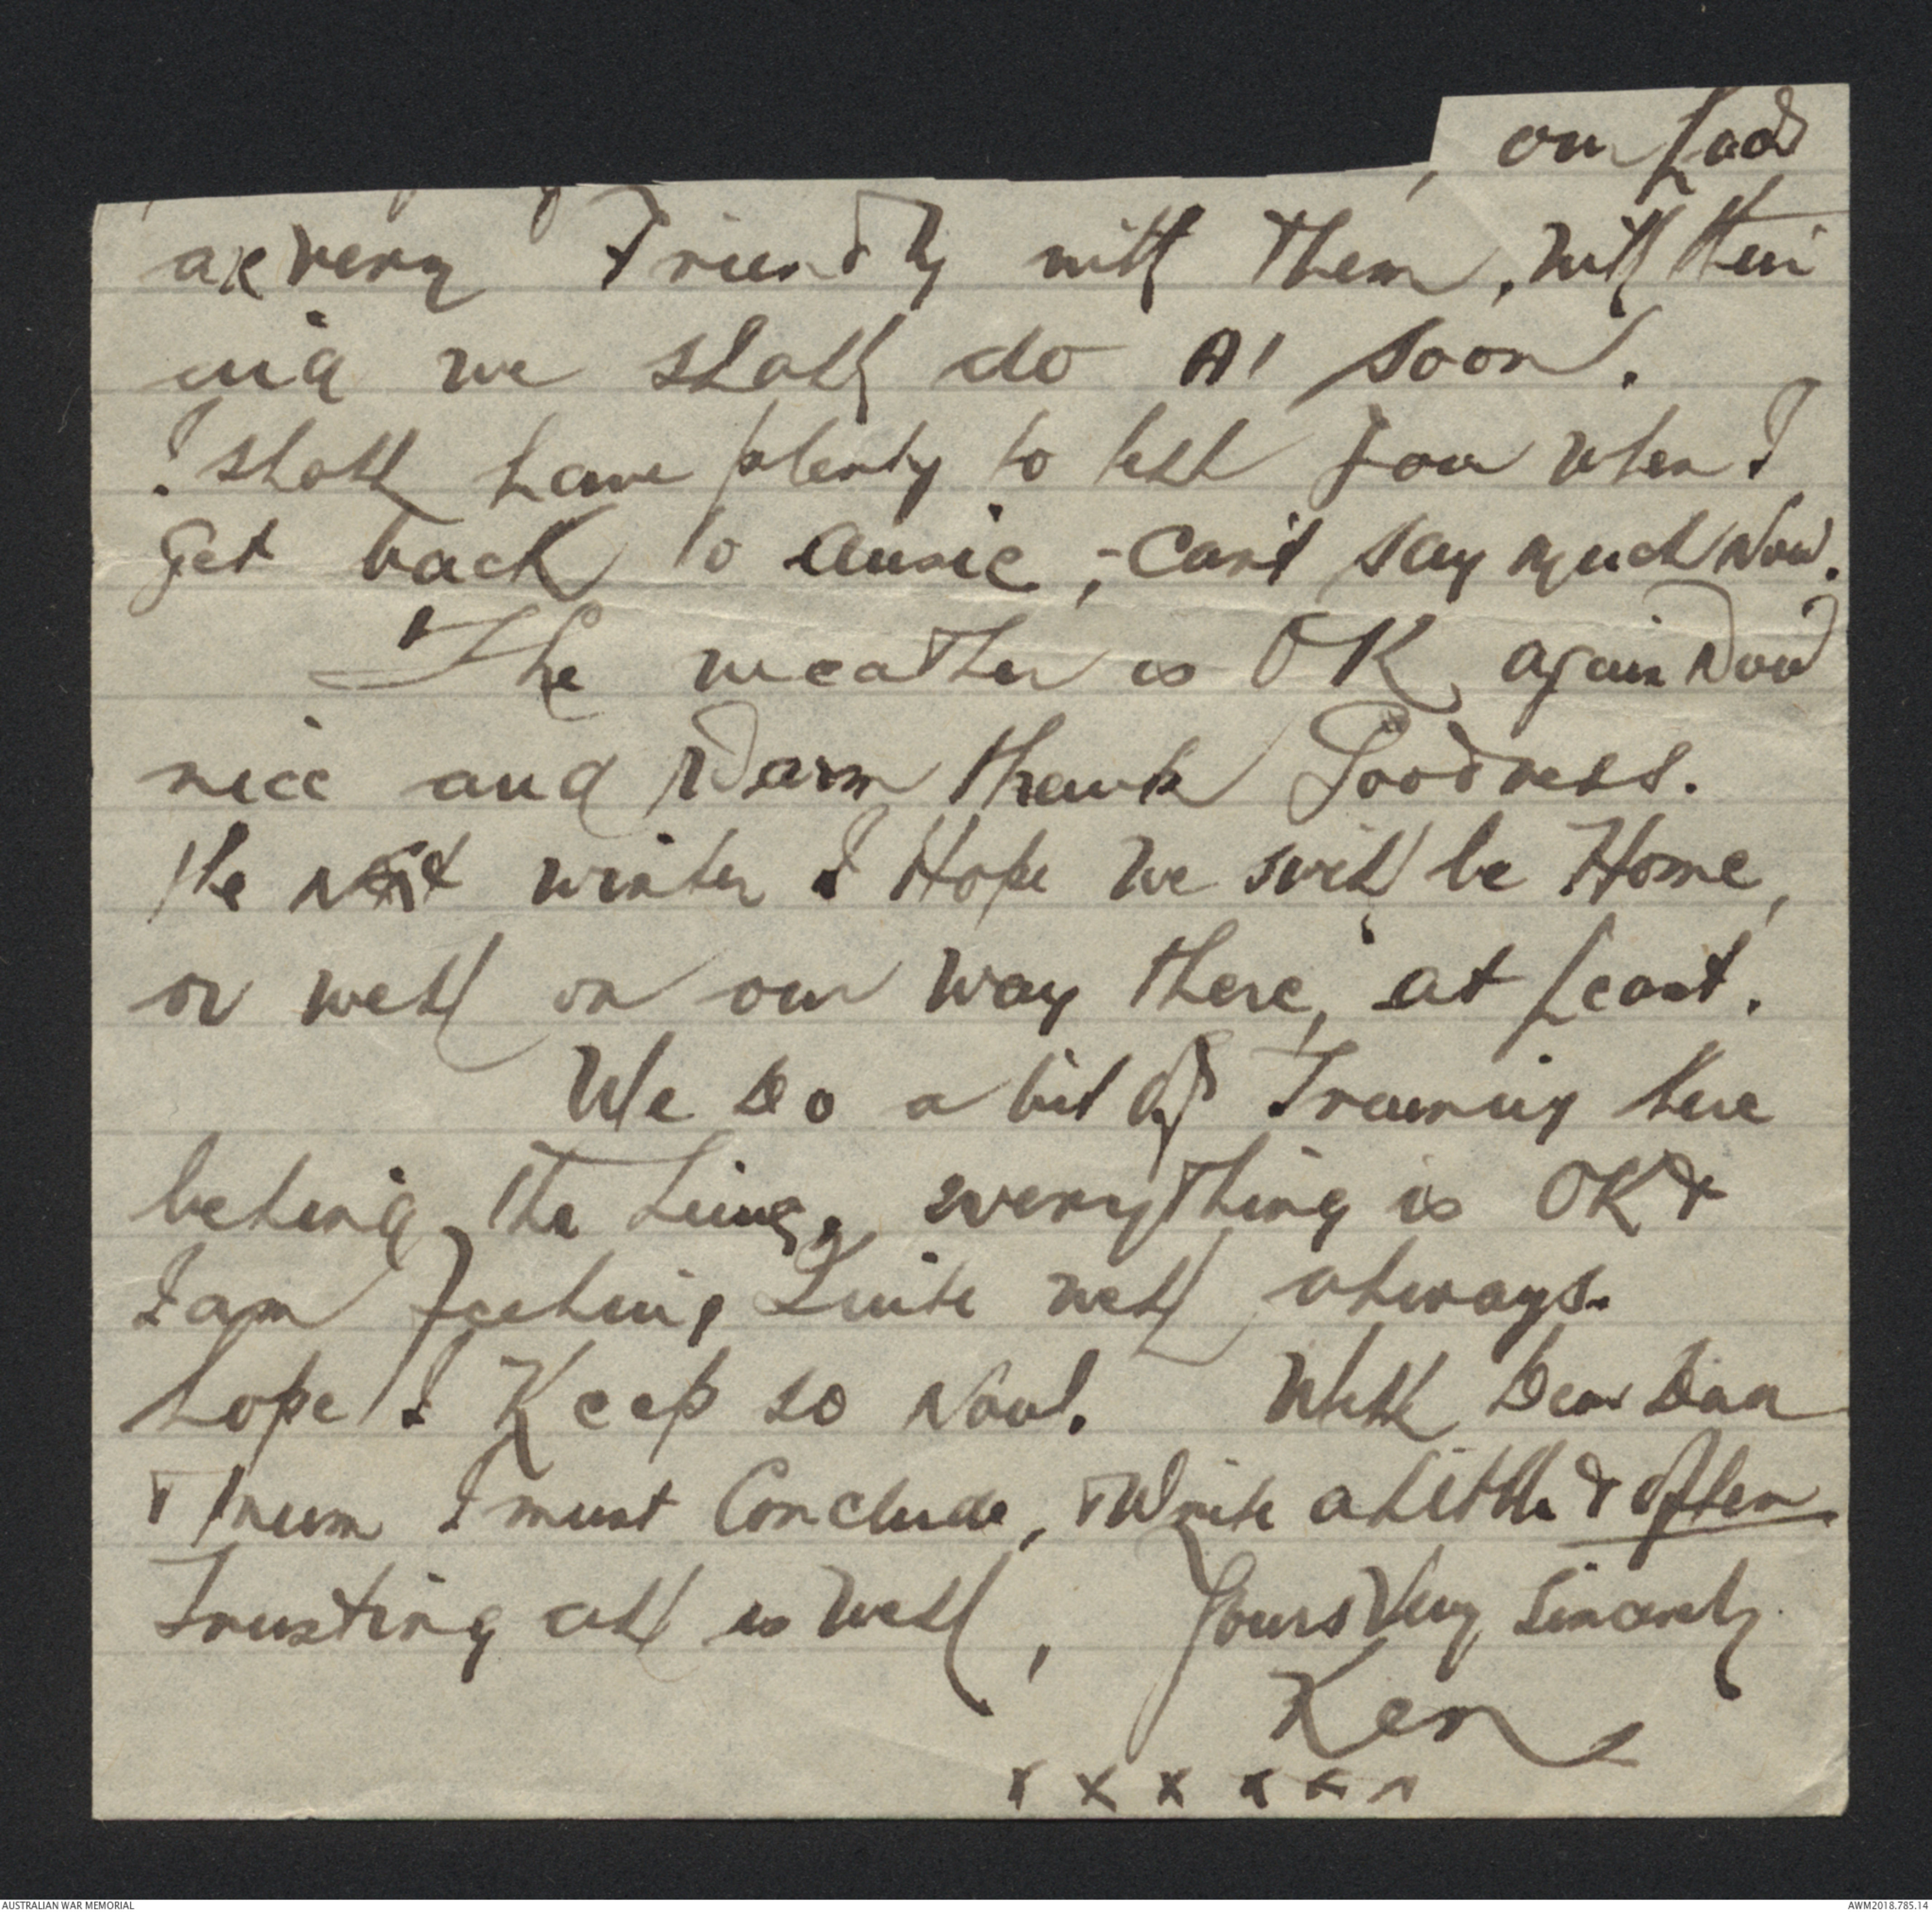 our Lads
are very Friendly with Them, with their
aid we shall do A1 soon.
I shall have plenty to tell You when I
Get back to Aussie, - Can't say much Now.
The weather is OK again Now
nice and Warm thank Goodness.
the next winter I Hope we will be Home,
or well on our way there, at Least.
We Do a bit of Training here
behind the Lines, everything is OK &
I am Feeling Quite well always.
hope I Keep so Now. Well Dear Dad
& Mum I must Conclude, & Write a Little & often.
Trusting all is Well, Yours Very Sincerely
Ken
x x x x x x
AUSTRALIAN WAR MEMORIAL
AWM2018.785.14